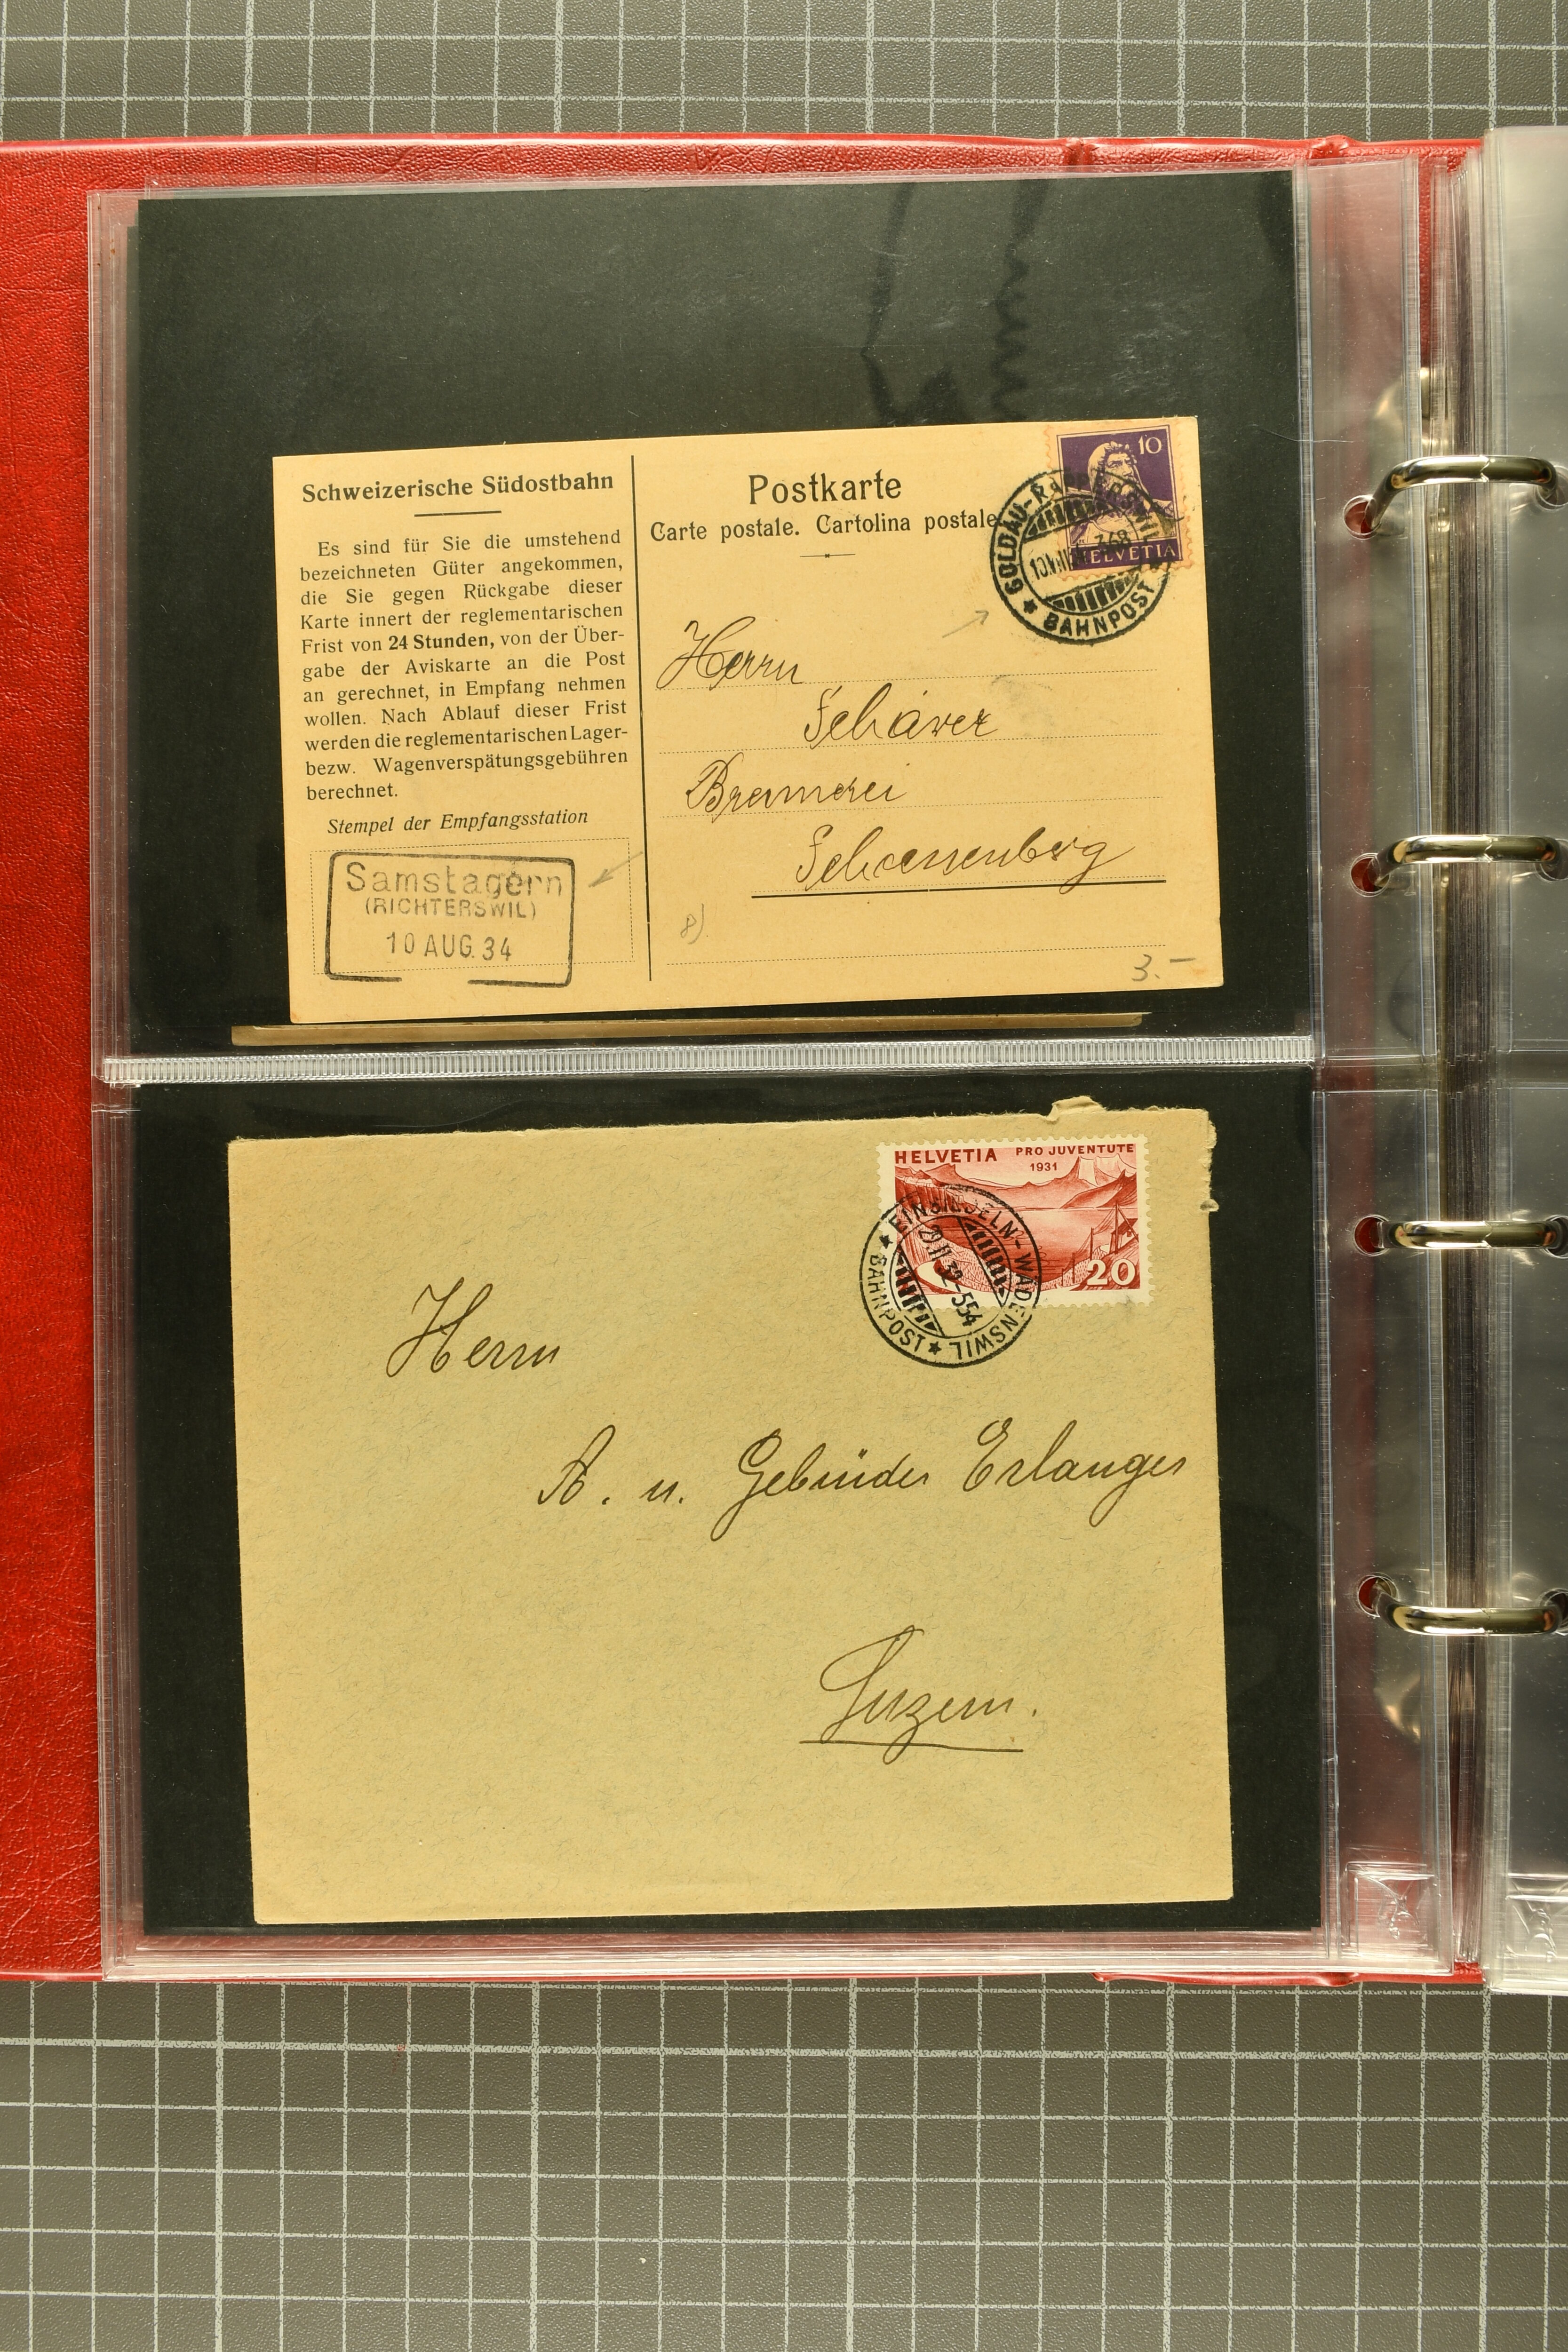 Schweizerische Südostbahn
Es sind für Sie die umstehend
bezeichneten Güter angekommen,
die Sie gegen Rückgabe dieser
Karte innert der reglementarischen
Frist von 24 Stunden, von der Über-
gabe der Aviskarte an die Post
an gerechnet, in Empfang nehmen
wollen. Nach Ablauf dieser Frist
werden die reglementarischen Lager-
bezw. Wagenverspätungsgebühren
berechnet.
Stempel der Empfangsstation
Samstagern
(RICHTERSWIL)
10 AUG. 34
Postkarte
Carte postale. Cartolina postale
10
HELVETIA
GOLDAU-RAPPERSWIL
768
BAHNPOST
Herrn
Schärer
Brennerei
Schoenenberg
8)
3.-
HELVETIA PRO JUVENTUTE
1931
20
EINSIEDELN-WÄDENSWIL
29.II.32-554
BAHNPOST
Herrn
A. u. Gebrüder Erlanger
Luzern.